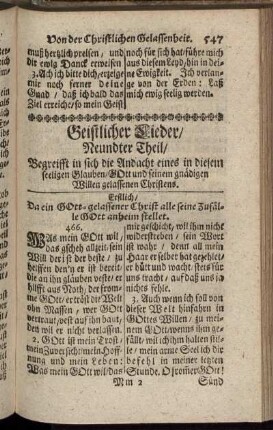 Von der Christlichen Gelassenheit. 547
muß hertzlich preisen, und
dir ewig Danck erweisen
3. Ach ich bitte dich, erzeige
mir noch ferner deine
Gnad, daß ich bald das
Ziel erreiche, so mein Geist
noch für sich hat, führe mich
aus diesem Leyd, hin in dei-
ne Ewigkeit. Ich verlan-
ge von der Erden: Laß
mich ewig seelig werden.
Geistlicher Lieder/
Neundter Theil/
Begreifft in sich die Andacht eines in diesem
seeligen Glauben, GOtt und seinem gnädigen
Willen gelassenen Christens.
Erstlich/
Da ein GOtt-gelassener Christ alle seine Zufäl-
le GOtt anheim stellet.
466.
WAs mein GOtt wil/
das gscheh allzeit/sein
Will der ist der beste / zu
helffen den'n er ist bereit
die an ihn gläuben veste/ er
hilfft aus Noth/ der from-
me GOtt/ er tröst die Welt
ohn Massen, wer GOtt
vertraut/vest auf ihn baut,
den wil er nicht verlassen.
2. GOtt ist mein Trost/
mein Zuversicht/mein Hoff-
nung und mein Leben:
Was mein GOtt wil das
mir geschicht, wil ich ihm nicht
widerstreben / sein Wort
ist wahr / denn all mein
Haar er selber hat gezehlet/
er hüt't und wacht/stets für
uns tracht/ auf daß uns ja
nichtes fehle.
3. Auch wenn ich soll von
dieser Welt hinfahrn in
GOttes Willen / zu mei-
nem GOtt/wenns ihm ge-
fällt/ wil ich ihm halten stil-
le / mein arme Seel ich dir
befehl in meiner letzten
Stunde. O fromer GOtt/
Mm 2 Sünd